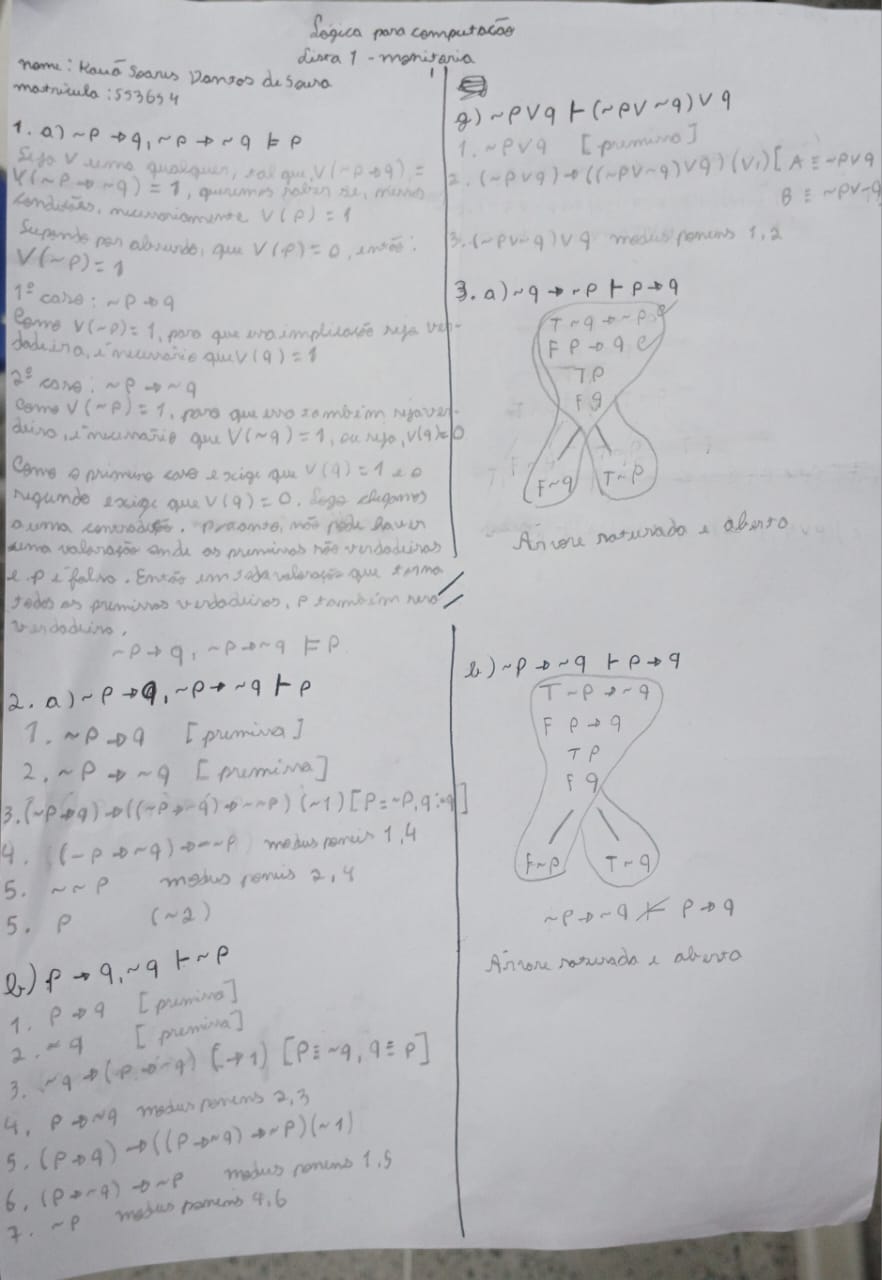 Lógica para computação
Lista 1 - monitoria
nome: Kauã Soares Dantas de Sousa
matrícula: 553654
1. a) ~p → q, ~p → ~q ⊨ p
Seja V uma qualquer, tal que, V(~p → q) =
V(~p → ~q) = 1, queremos saber se, nessas
condições, necessariamente V(p) = 1
Supondo por absurdo, que V(p) = 0, então:
V(~p) = 1
1º caso: ~p → q
Como V(~p) = 1, para que essa implicação seja ver-
dadeira, é necessário que V(q) = 1
2º caso: ~p → ~q
Como V(~p) = 1, para que isso também seja ver-
deiro, é necessário que V(~q) = 1, ou seja, V(q) = 0
Como o primeiro caso exige que V(q) = 1 e o
segundo exige que V(q) = 0. Logo chegamos
a uma contradição. Portanto, não pode haver
uma valoração onde as premissas são verdadeiras
e p é falso. Então em toda valoração que torna
todos as premissas verdadeiras, p também será
verdadeiro.
~p → q, ~p → ~q ⊨ p
2. a) ~p → q, ~p → ~q ⊢ p
1. ~p → q [premissa]
2. ~p → ~q [premissa]
3. (~p → q) → ((~p → ~q) → ~~p) (~1) [p = ~p, q = q]
4. (~p → ~q) → ~~p modus ponens 1,4
5. ~~p modus ponens 2,4
5. p (~2)
b) p → q, ~q ⊢ ~p
1. p → q [premissa]
2. ~q [premissa]
3. ~q → (p → ~q) (→1) [p ≡ ~q, q ≡ p]
4. p → ~q modus ponens 2,3
5. (p → q) → ((p → ~q) → ~p) (~1)
6. (p → ~q) → ~p modus ponens 1,5
7. ~p modus ponens 4,6
g) ~p ∨ q ⊢ (~p ∨ ~q) ∨ q
1. ~p ∨ q [premissa]
2. (~p ∨ q) → ((~p ∨ ~q) ∨ q) (∨1) [A ≡ ~p ∨ q
B ≡ ~p ∨ ~q
3. (~p ∨ ~q) ∨ q modus ponens 1,2
3. a) ~q → ~p ⊢ p → q
T ~q → ~p
F p → q
T p
F q
F ~q T ~p
Árvore saturada e aberta
b) ~p → ~q ⊢ p → q
T ~p → ~q
F p → q
T p
F q
F ~p T ~q
~p → ~q ⊬ p → q
Árvore saturada e aberta